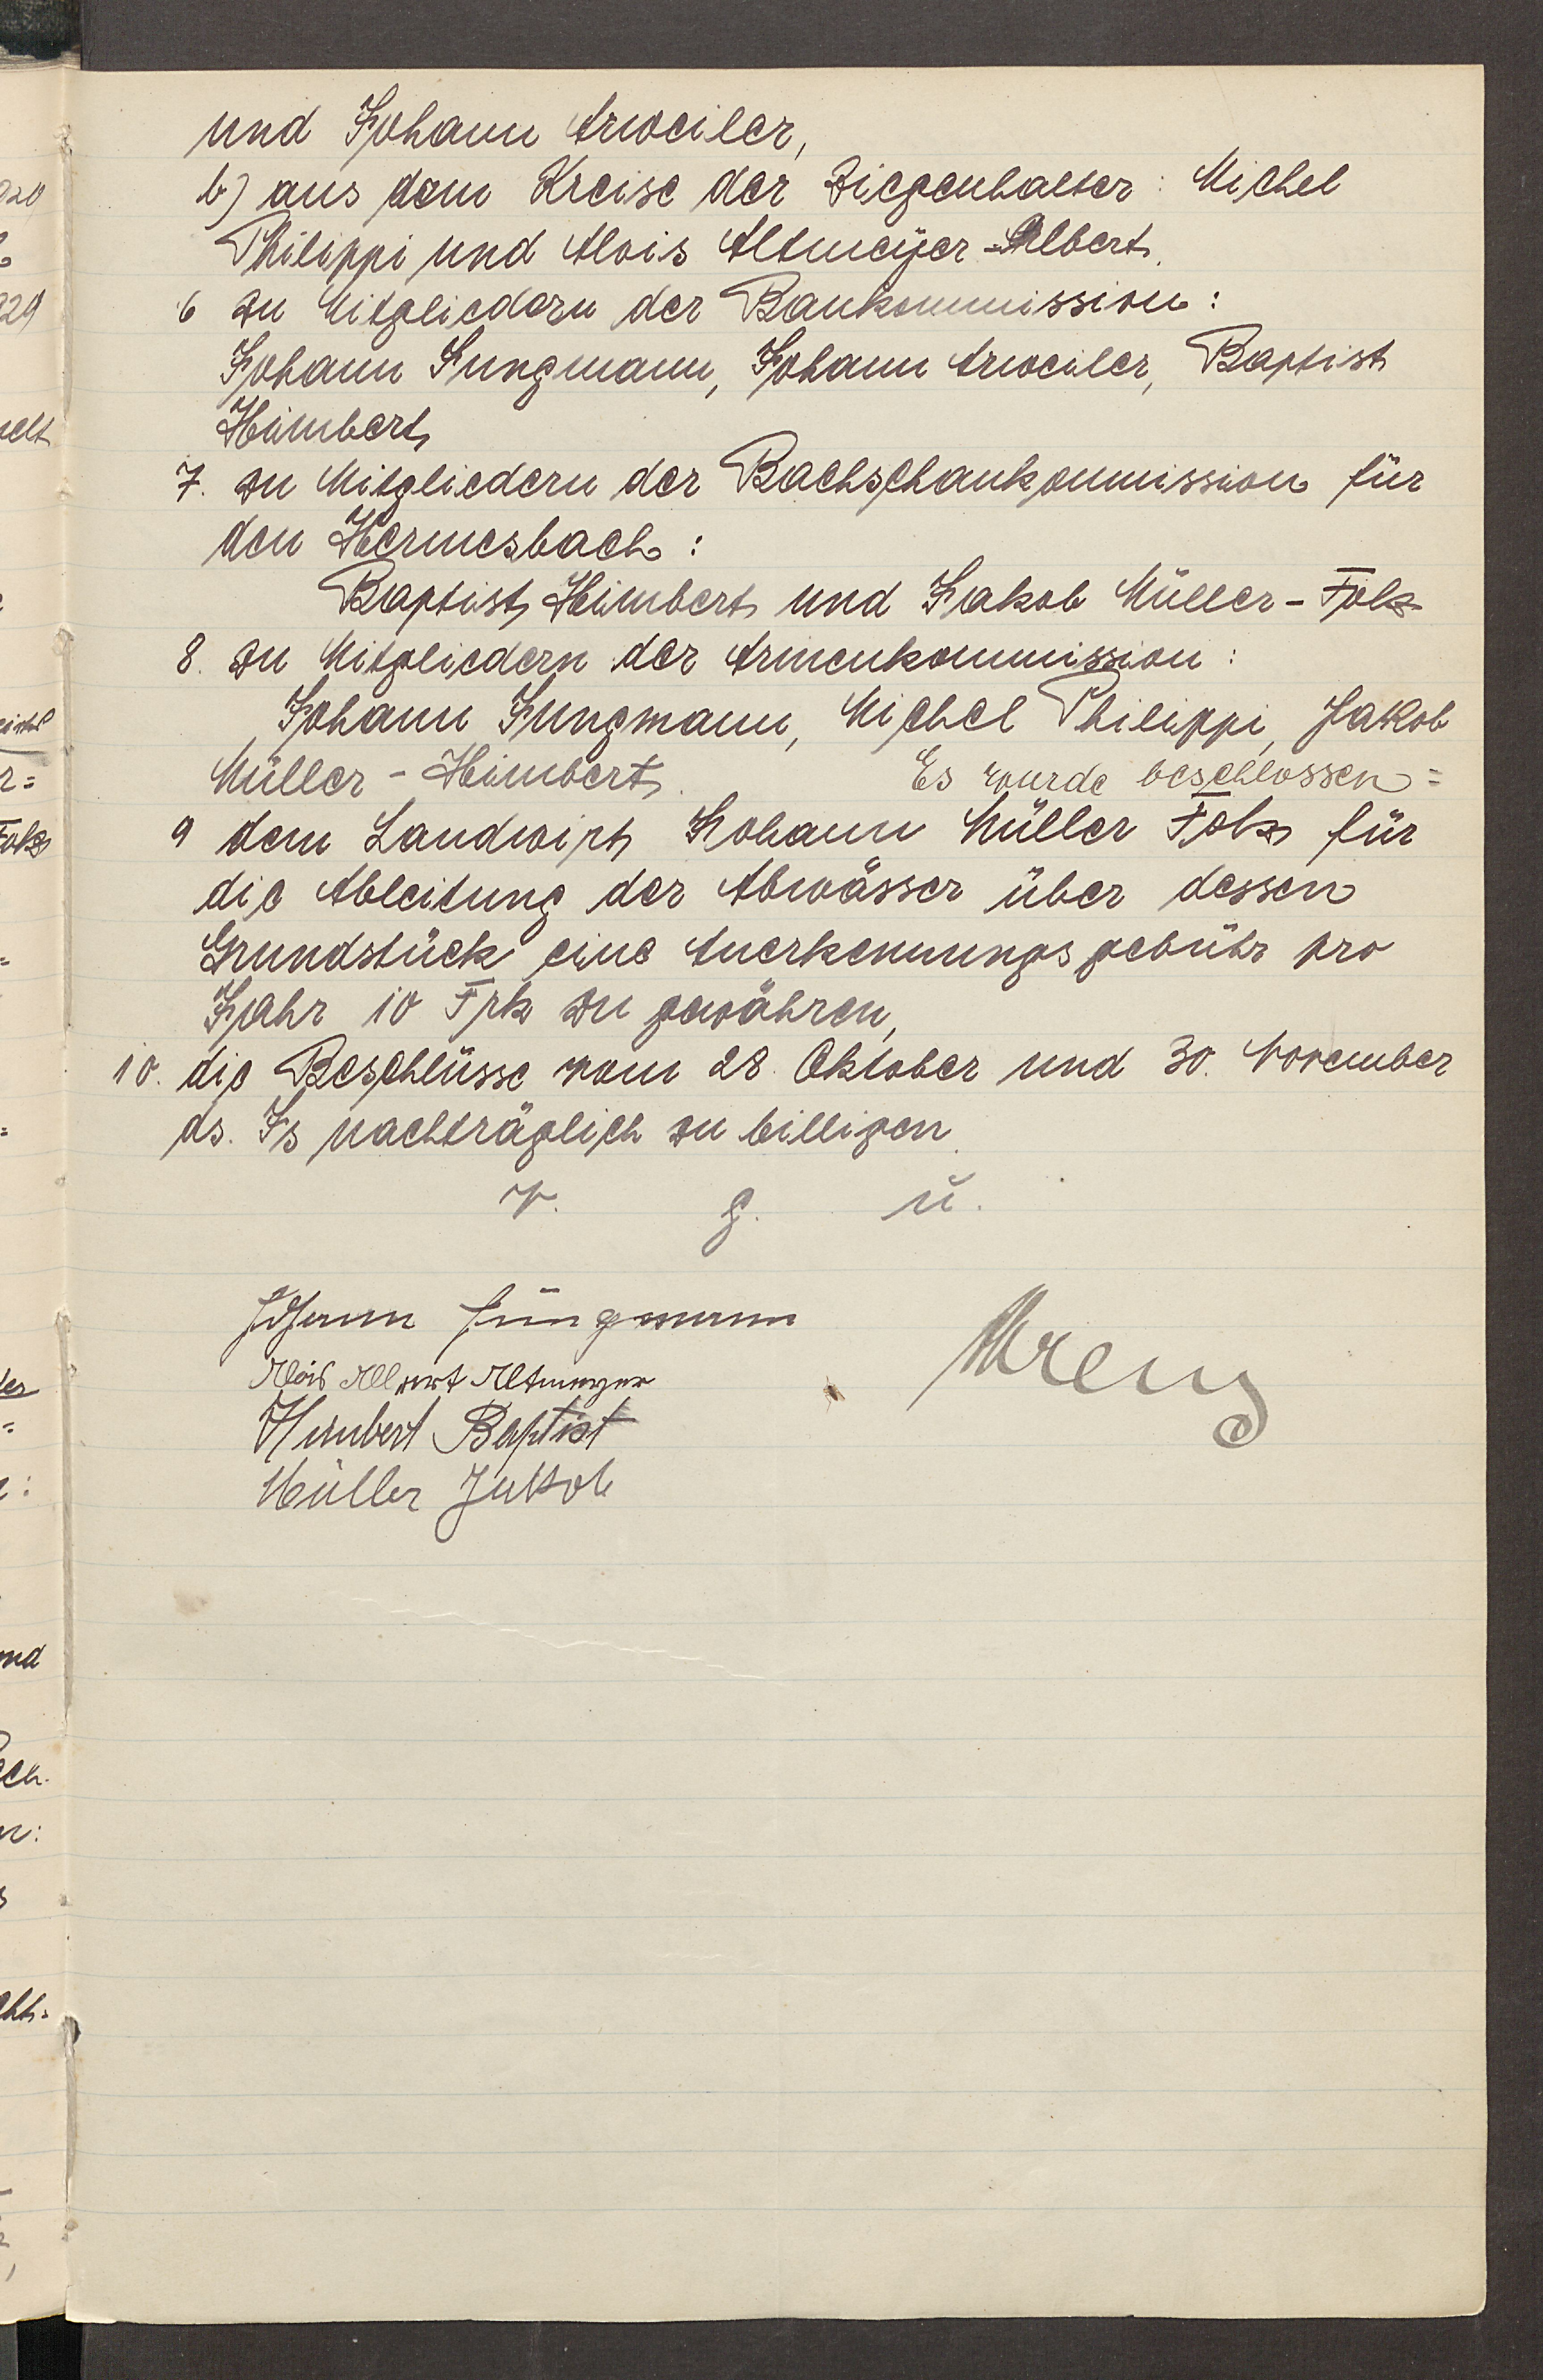 und Johann Arweiler,
b) aus dem Kreise der Ziegenhalter: Michel
Philippi und Alois Altmeÿer-Albert.
6 zu Mitgliedern der Baukommission:
Johann Jungmann, Johann Arweiler, Baptist
Himbert
7. zu Mitgliedern der Bachschaukommission für
den Hermesbach:
Baptist Himbert und Jakob Müller-Folz
8. zu Mitgliedern der Armenkommission:
Johann Jungmann, Michel Philippi, Jakob
Müller-Himbert. Es wurde beschlossen=
9 dem Landwirt Johann Müller Folz für
die Ableitung der Abwässer über dessen
Grundstück eine Anerkennungsgebühr pro
Jahr 10 Frk zu gewähren,
10. die Beschlüsse vom 28. Oktober und 30. November
ds. Js nachträglich zu billigen.
v. g. u.
Johann Jungmann
Alois Albert Altmeyer
Himbert Baptist
Müller Jakob